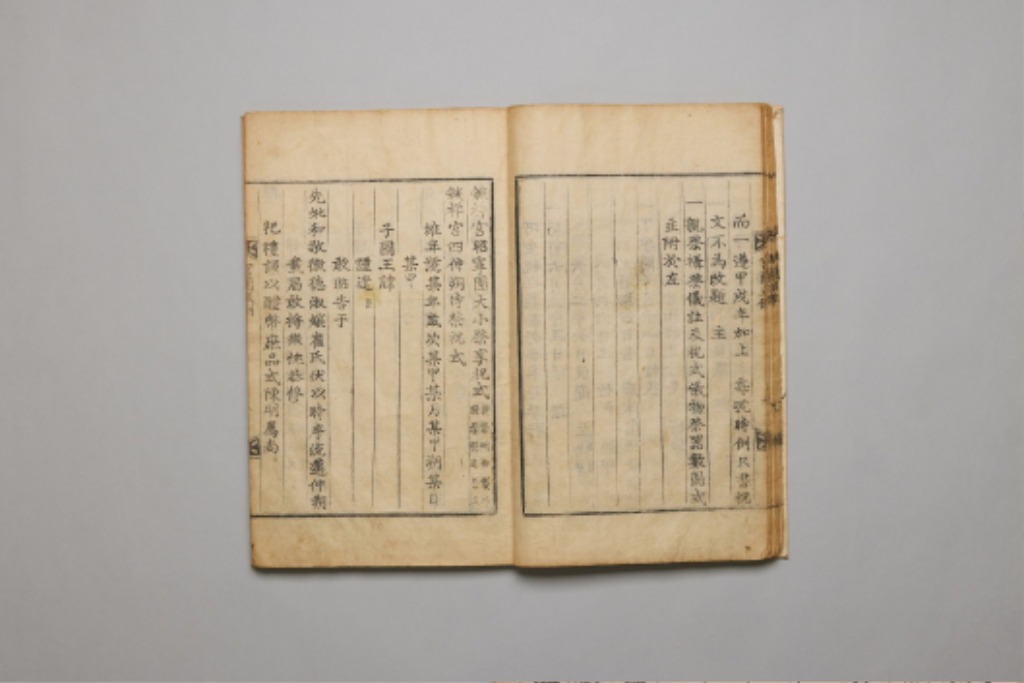 而一遵甲戌年加上 尊號時例只書祝
文不爲改題 主
一親祭攝祭儀註及祝式儀物祭器數圖式
並附於左
毓祥宮昭寧園大小祭享祝式
毓祥宮四仲朔時祭祝式
維年號某年歲次某甲某月某甲朔某日
某甲
子國王諱
謹遣臣
敢昭告于
先妣和敬徽德淑嬪崔氏伏以時序流邁仲朔
載屆敢將微忱恭修
祀禮謹以醴幣庶品式陳明薦尙